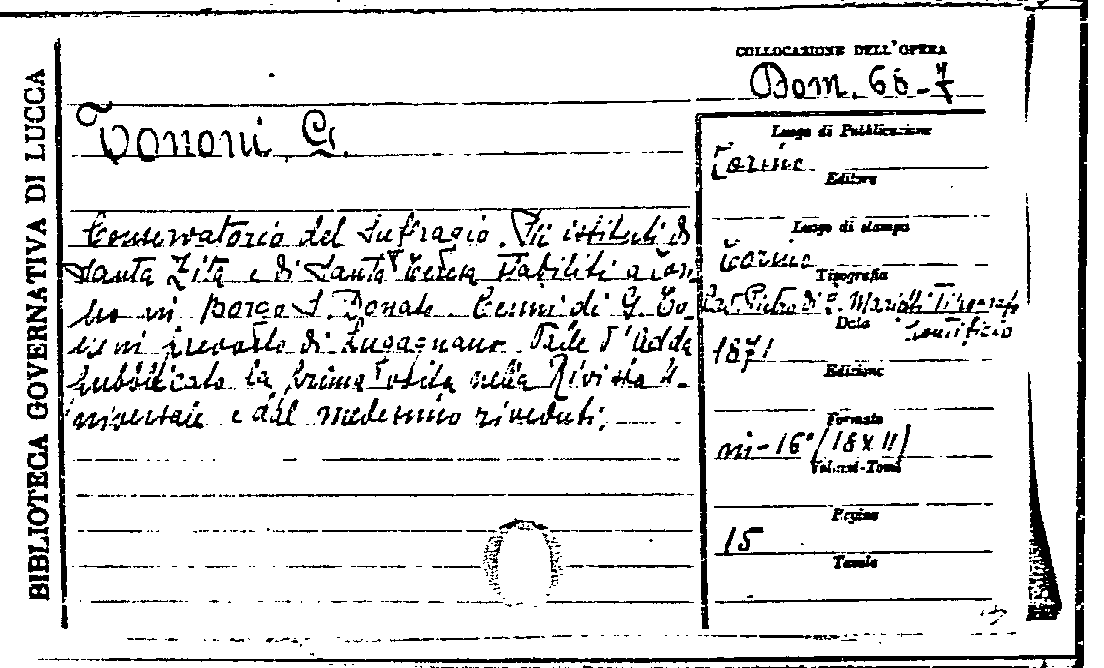 BIBLIOTECA GOVERNATIVA DI LUCCA
COLLOCAZIONE DELL'OPERA
Dom. 66-7
Tononi G.
Conservatorio del Suffragio. Gli istituti di
Santa Zita e di Santa Teresa stabiliti a Tori-
no in Borgo S. Donato. Cenni di G. To-
noni prevosto di Lugagnano Valle d'Adda
pubblicato la prima volta nella Rivista U-
niversale e dal medesimo riveduti.
Luogo di Pubblicazione
Torino
Editore
Luogo di stampa
Torino
Tipografia
Cav. Pietro di G. Marietti Tipografo
Pontificio
Data
1871
Edizione
Formato
in-16° (18x11)
Volumi-Tomi
Pagine
15
Tavole